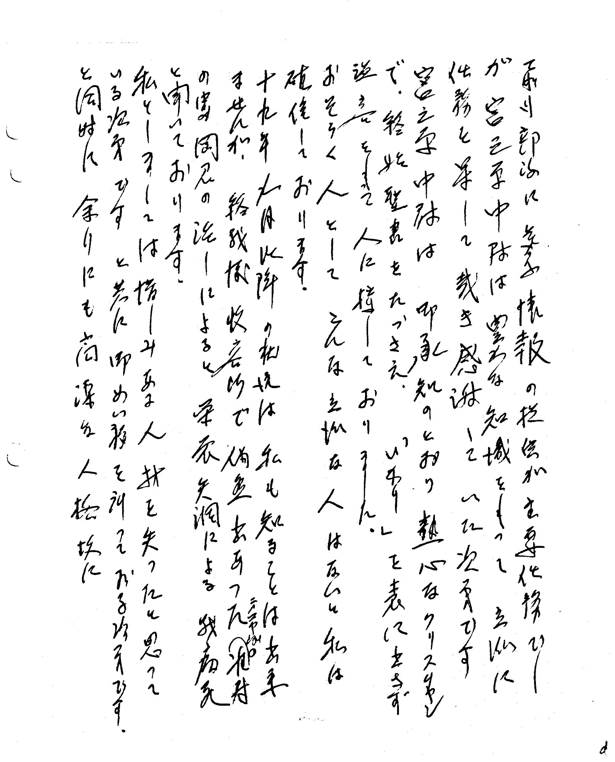 最川部隊に兵要情報の提供が主要任務でし
が 宮之原中尉は豊富な知識をもって 立派に
任務を果して戴き感謝していた次第です
宮之原中尉は 御承知のとおり熱心なクリスチャン
で、終始聖書をたづさえ、「いかり」を表に出さず
善をもって人に接しておりました。
おそらく人として こんな立派な人はないと私は
確信しております。
十九年九月以降の状況は 私も知ることは出来
ませんが、終戦後収容所で偶然出あった
の富田君の話しによると 栄養失調による戦病死
と聞いております。
私としましては惜しみある人材を失ったと思って
いる次第です と共に御めい福を祈っておる次第です。
と同時に 余りにも高潔な人格故に